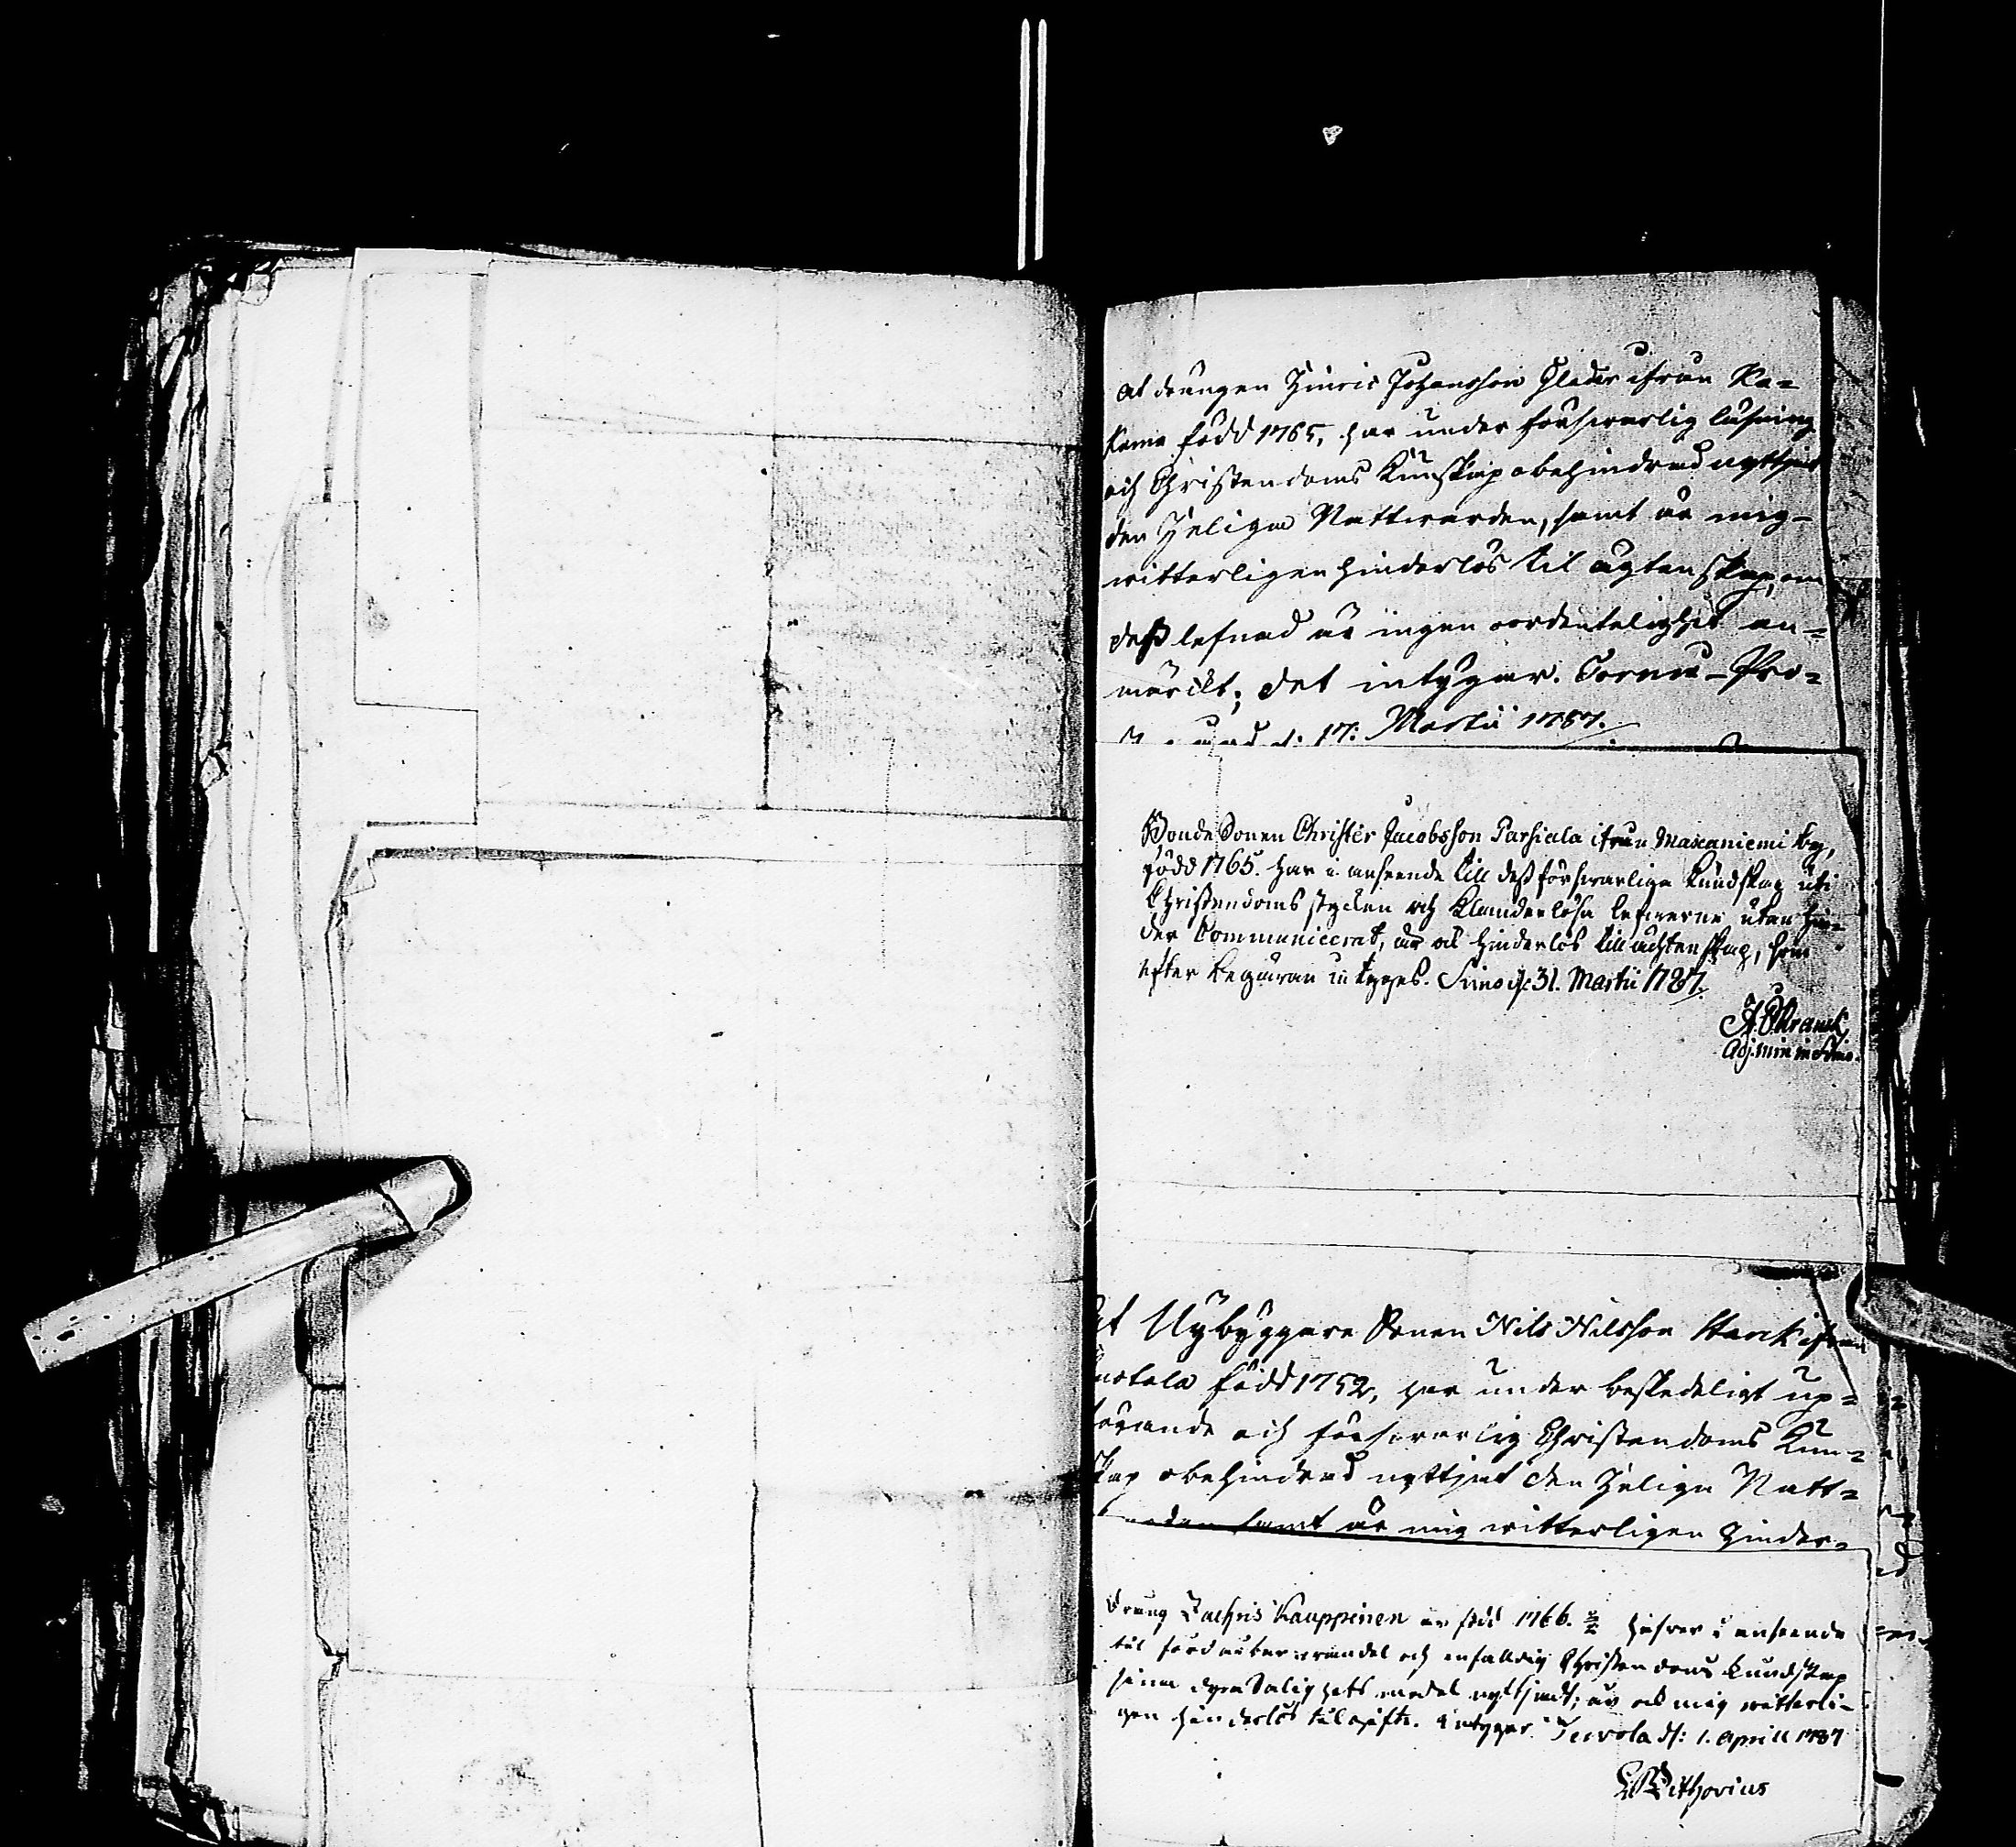 at drängen Hinric Johansson Glader ifrån Ra-
kama född 1765, har under förswarlig läsning
och Christendoms Kunskap obehindrad nyttjat
den Heliga Nattwarden, samt är mig
witterligen hinderlös til ägtenskap, om
dess lefnad är ingen oordentelighet an-
märckt; det intygar. Torneå-
d: 17: Martii 1787.
Bonde Sonen Christer Jacobsson Parsiala ifrån Maxaniemi by,
född 1765. har i anseende till dess förswarliga kundskap uti
Christendoms stycken och klanderlösa lefwerne utan hin-
der Communicerat, är ock hinderlös till ächtenskap, som
efter begäran intyges. Simo d: 31. Martii 1787.
Adj. min in Simo.
at Nybyggare Sonen Nils Nilsson Starck ifrån
född 1752, har under beskedeligt up-
förande och förswarlig Christendoms Kun-
skap obehindrad nyttjat den Heliga Natt-
warden samt är mig witterligen hinder-
Dräng Zachris Kauppinen är född 1766. hafwer i anseende
til och enfaldig Christendoms kundskap
sinna dyra Salighets medel nyttjandt; är ock mig witterli-
gen hinderlös til gifte. Intygar Terwola d: 1. April 1787